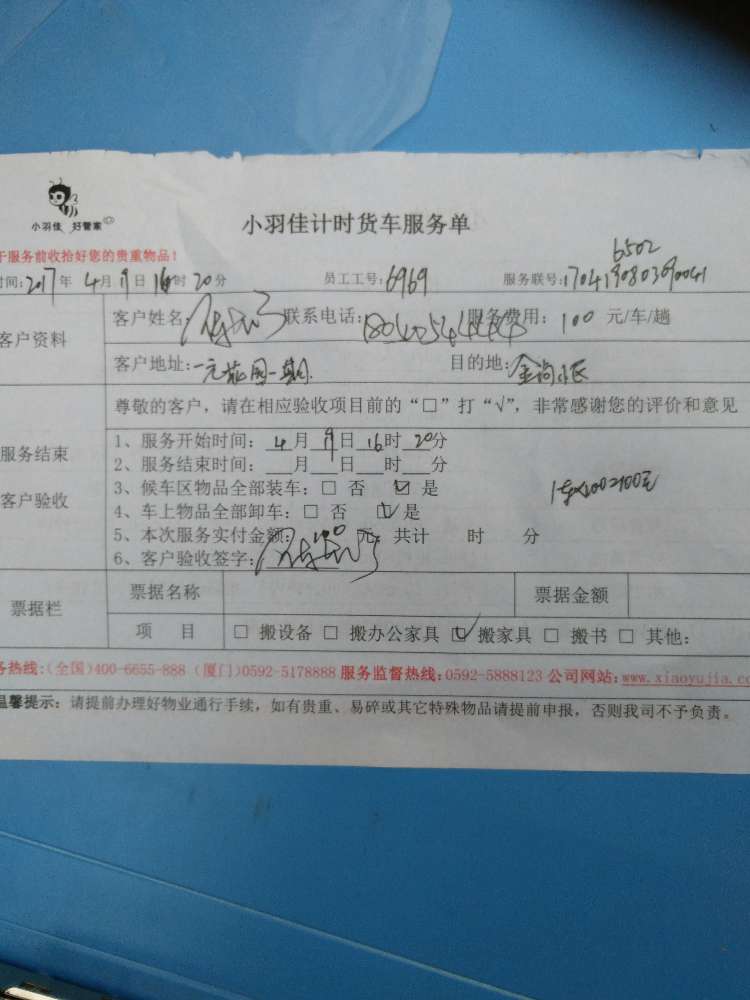 小羽佳 好管家
小羽佳计时货车服务单
于服务前收拾好您的贵重物品!
6502
时间:2017年 4月19日 16时20分 员工工号:6969 服务联号:
客户资料
客户姓名: 联系电话: 服务费用: 100 元/车/趟
客户地址: 一期 目的地:
尊敬的客户,请在相应验收项目前的“□”打“√”,非常感谢您的评价和意见
服务结束
客户验收
1、服务开始时间: 4月19日16时20分
2、服务结束时间:___月___日___时___分
3、候车区物品全部装车:□ 否 ☑ 是
4、车上物品全部卸车:□ 否 ☑ 是
5、本次服务实付金额:100 元 共计 时 分
6、客户验收签字:
票据栏
票据名称 票据金额
项 目 □ 搬设备 □ 搬办公家具 ☑ 搬家具 □ 搬书 □ 其他:
务热线:(全国)400-6655-888 (厦门)0592-5178888 服务监督热线:0592-5888123 公司网站:www.xiaoyujia.co
温馨提示:请提前办理好物业通行手续,如有贵重、易碎或其它特殊物品请提前申报,否则我司不予负责。